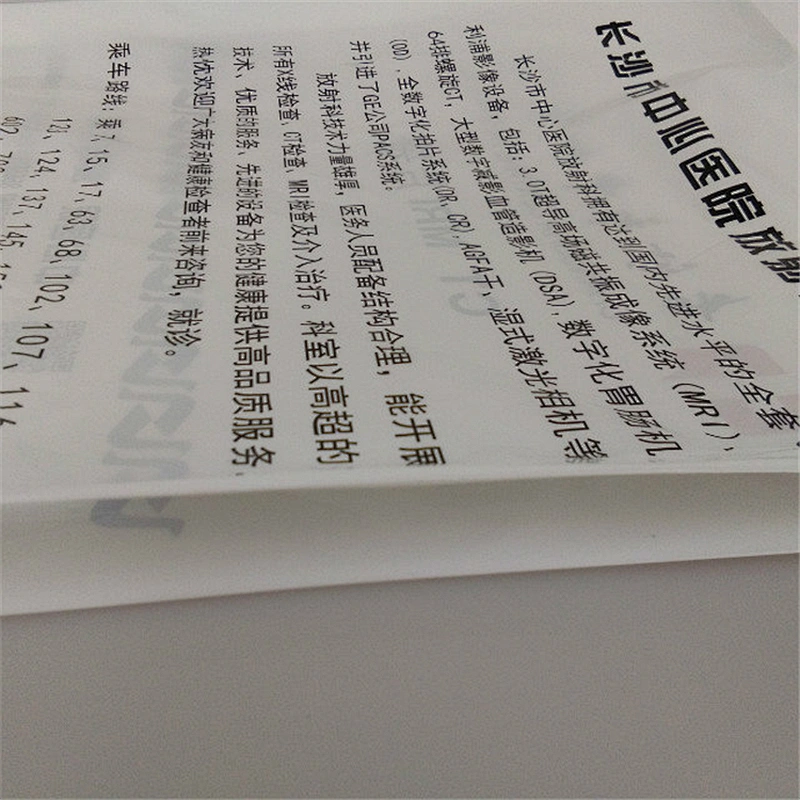 长沙市中心医院放射
长沙市中心医院放射科拥有达到国内先进水平的全套
利浦影像设备，包括：3.0T超导高场磁共振成像系统（MRI）、
64排螺旋CT，大型数字减影血管造影机（DSA），数字化胃肠机
(OD)，全数字化拍片系统(DR、CR)，AGFA干、湿式激光相机等
并引进了GE公司PACS系统。
放射科技术力量雄厚，医务人员配备结构合理，能开展
所有X线检查、CT检查、MRI检查及介入治疗。科室以高超的
技术、优质的服务、先进的设备为您的健康提供高品质服务，
热忱欢迎广大病友和健康检查者前来咨询，就诊。
乘车路线：乘7、15、17、63、68、102、107、114
124、137、145、